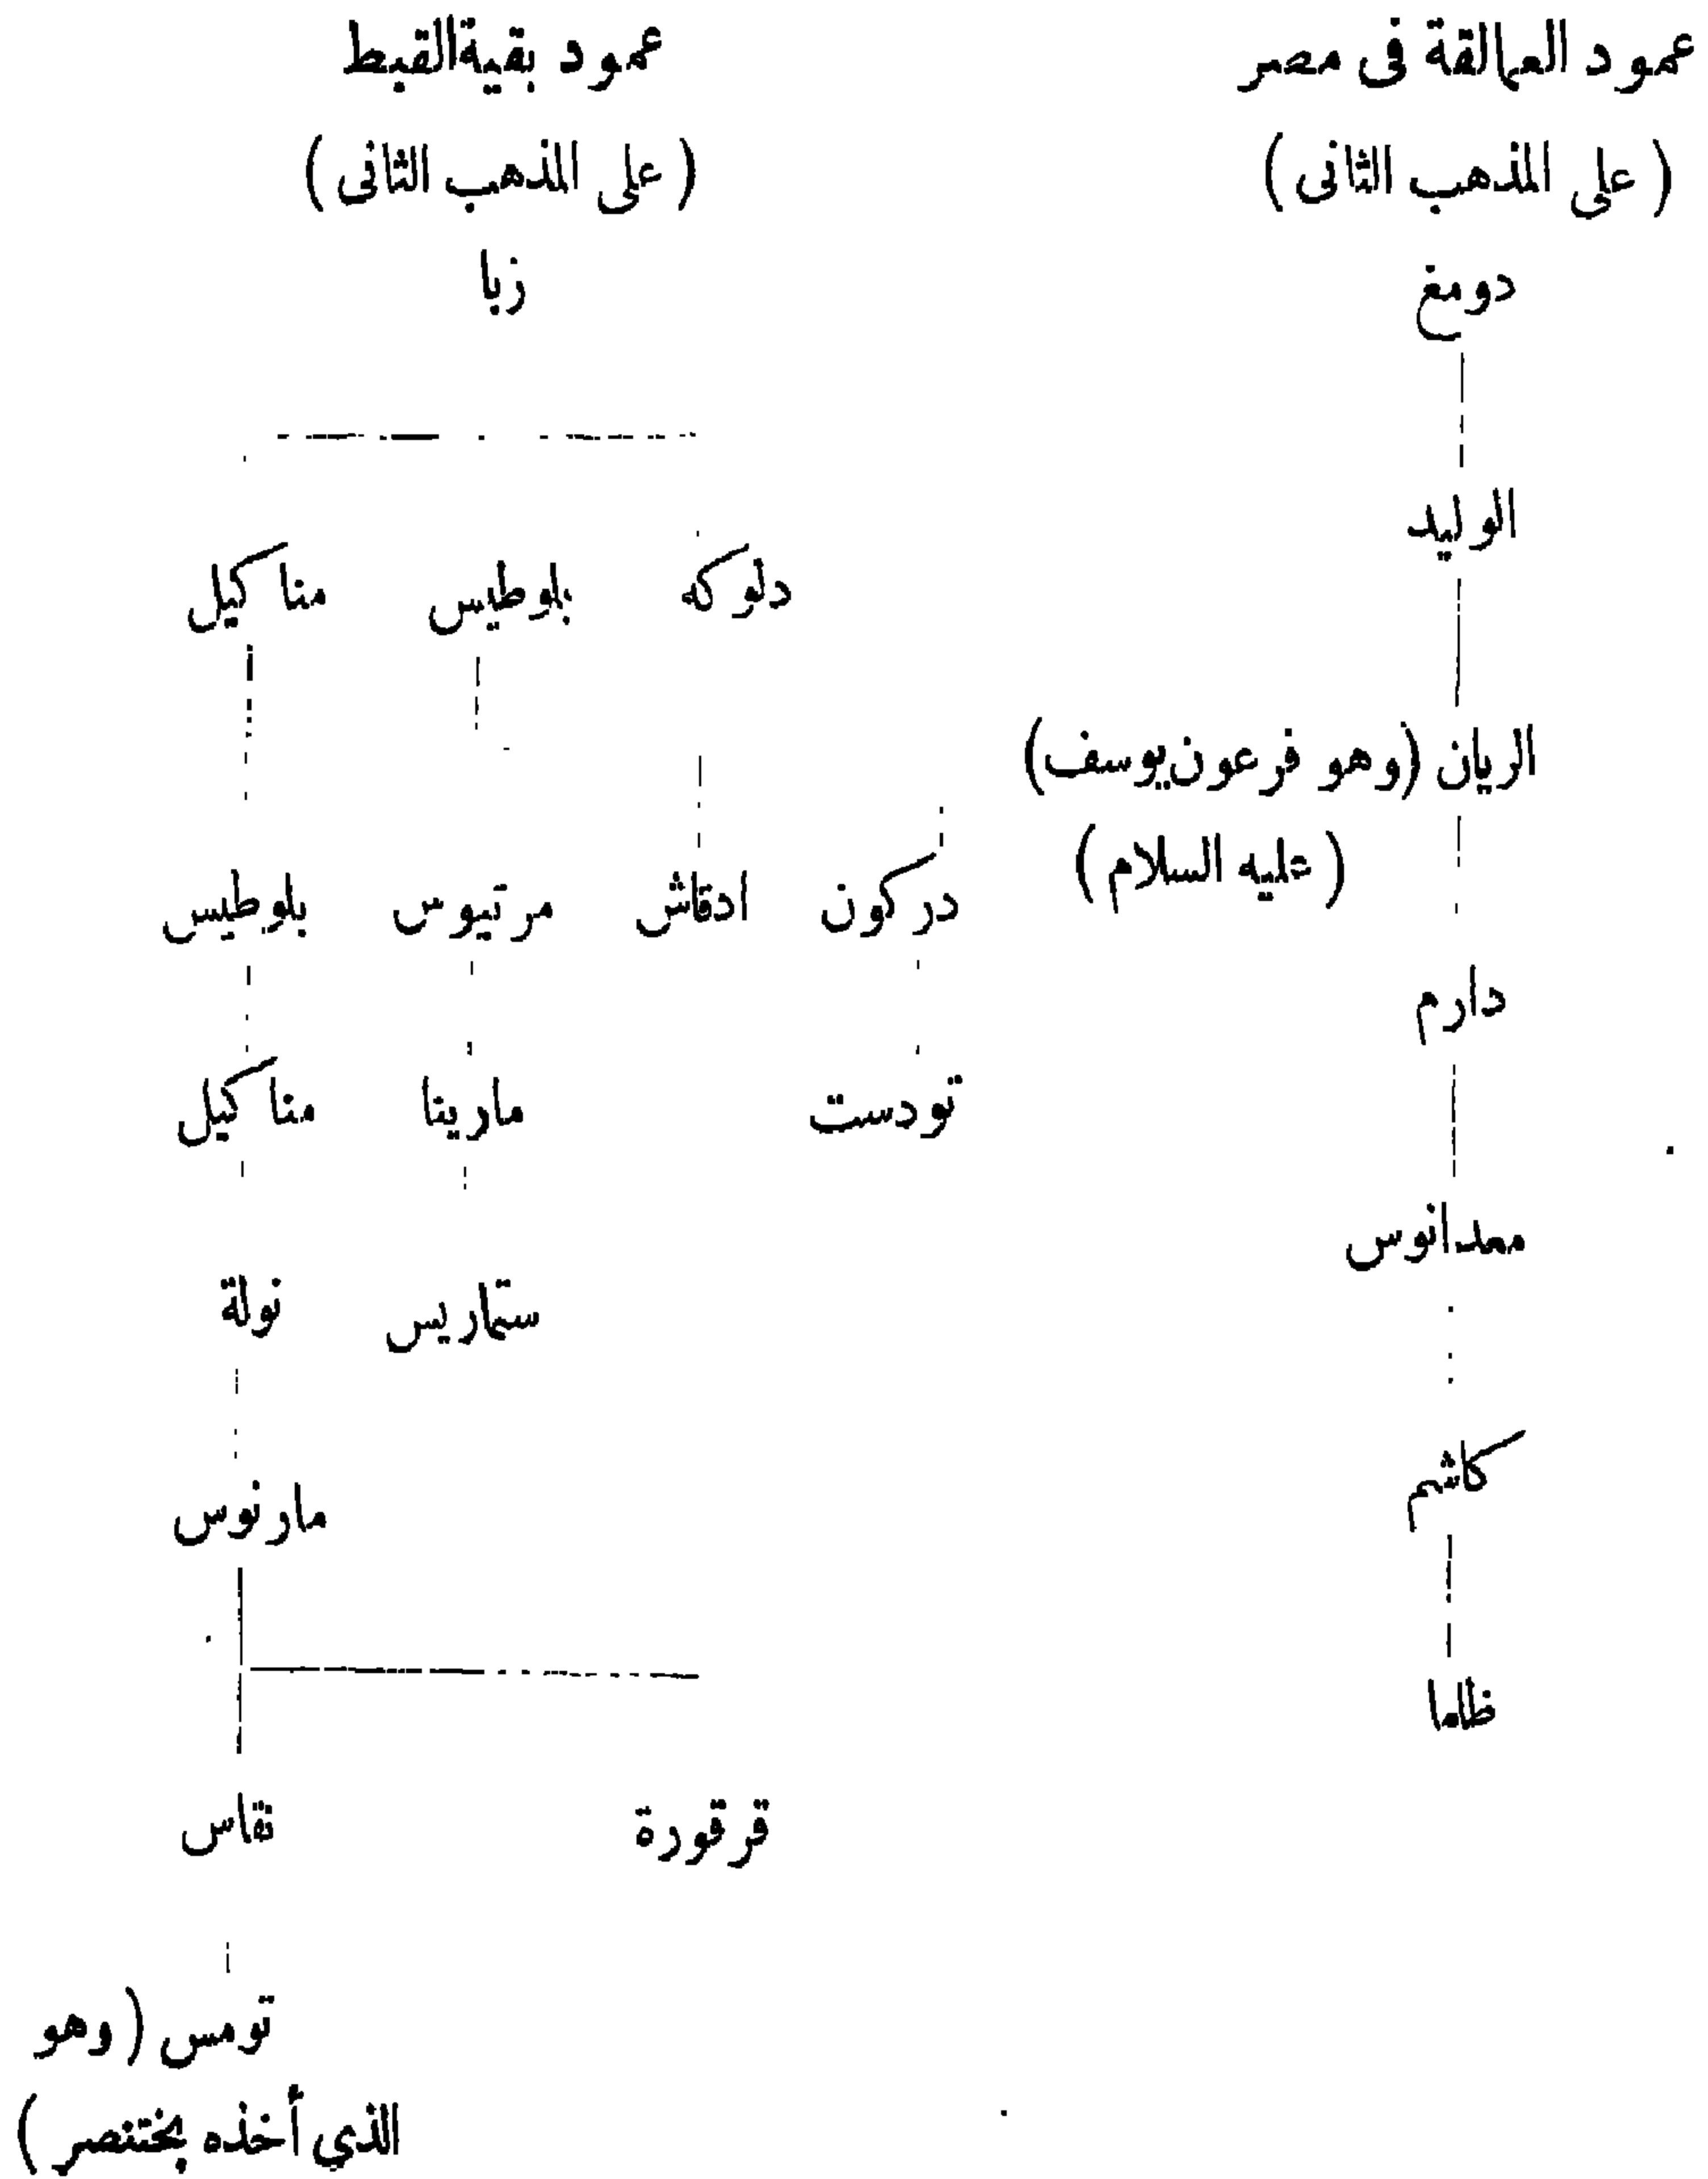 عمود العمالقة فى مصر
(على المذهب الثانى)
دومغ
الوليد
الريان (وهو فرعون يوسف)
(عليه السلام)
دارم
معدانوس
كاشم
ظالما
عمود بقية القبط
(على المذهب الثانى)
زبا
دلوكه بلوطيس مناكيل
دركون ادقاش مرتيوس بلوطيس
تودست مارينا مناكيل
ستماريس نولة
مارنوس
قرقورة نقاس
تومس (وهو
الذي أخذه بختنصر)